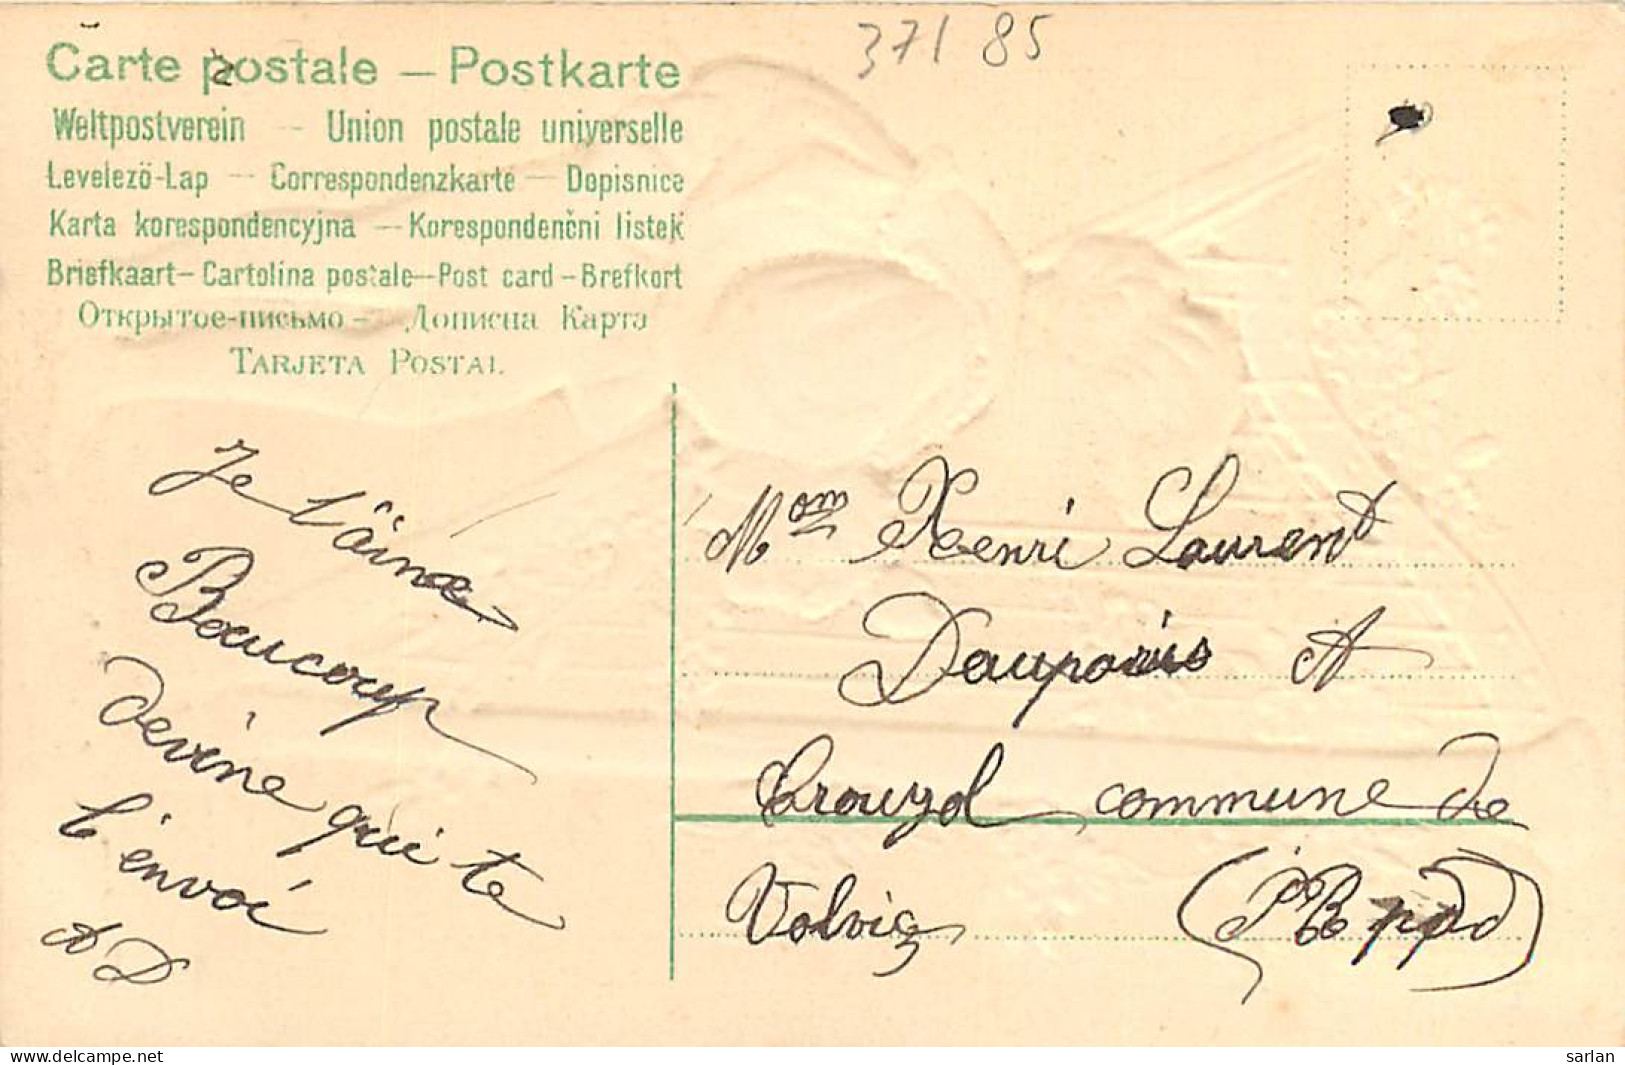 371 85
Carte postale — Postkarte
Weltpostverein — Union postale universelle
Levelezö-Lap — Correspondenzkarte — Dopisnice
Karta korespondencyjna — Korespondenčni listek
Briefkaart — Cartolina postale — Post card — Brefkort
Открытое-письмо — Дописна Карта
TARJETA POSTAL
Je t'âime
Beaucoup
devine qui te
l'envoi
A D
Henri Laurent
A
Crouzol commune de
Volvic
sarlan
delcampe.net